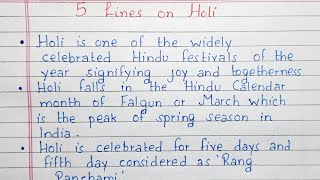 5 Lines on Holi
• Holi is one of the widely
celebrated Hindu festivals of the
year signifying joy and togetherness
• Holi falls in the Hindu Calendar
month of Falgun or March which
is the peak of spring season in
India.
• Holi is celebrated for five days and
fifth day considered as 'Rang
Panchami'